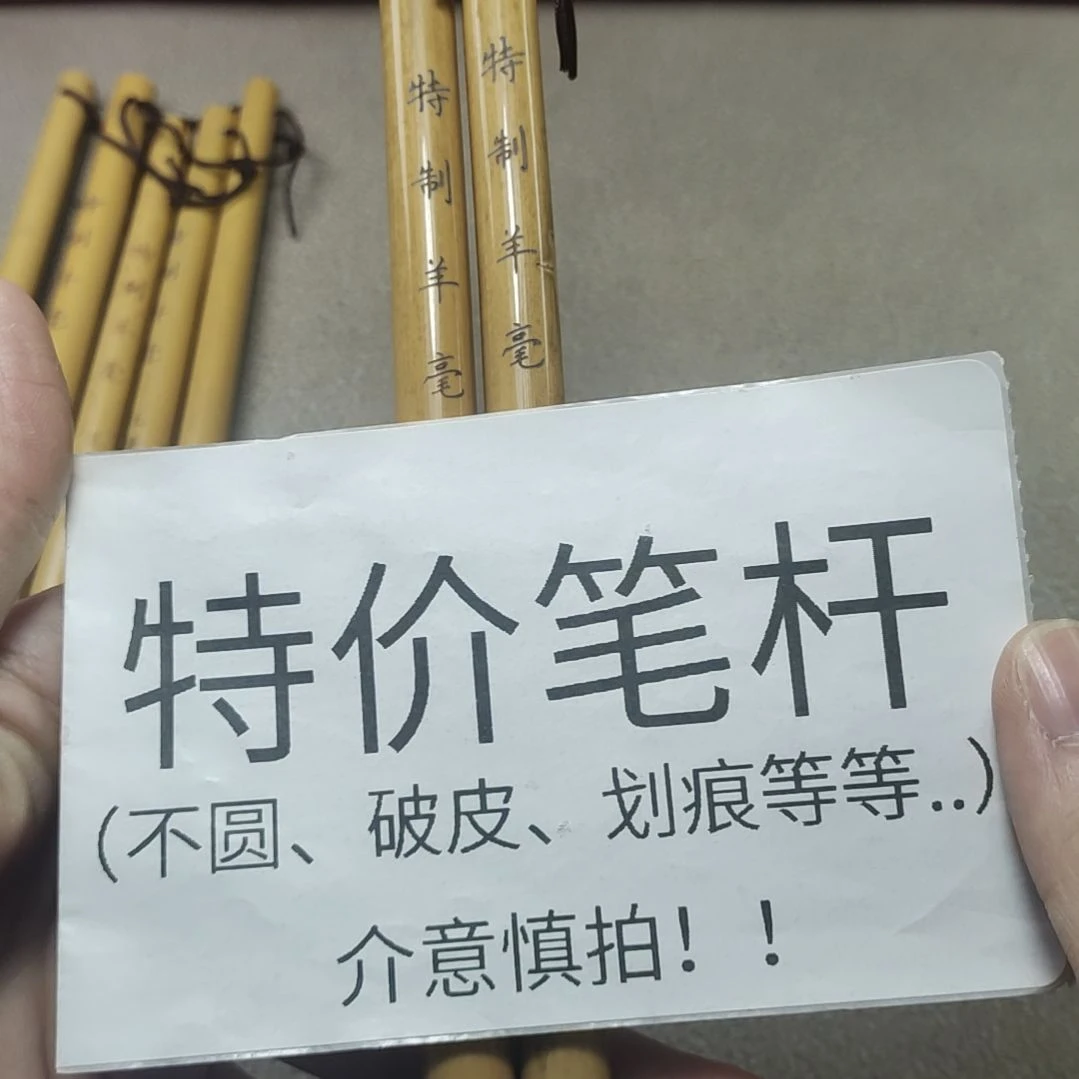 特制羊毫
特制羊毫
特价笔杆
(不圆、破皮、划痕等等..)
介意慎拍！！